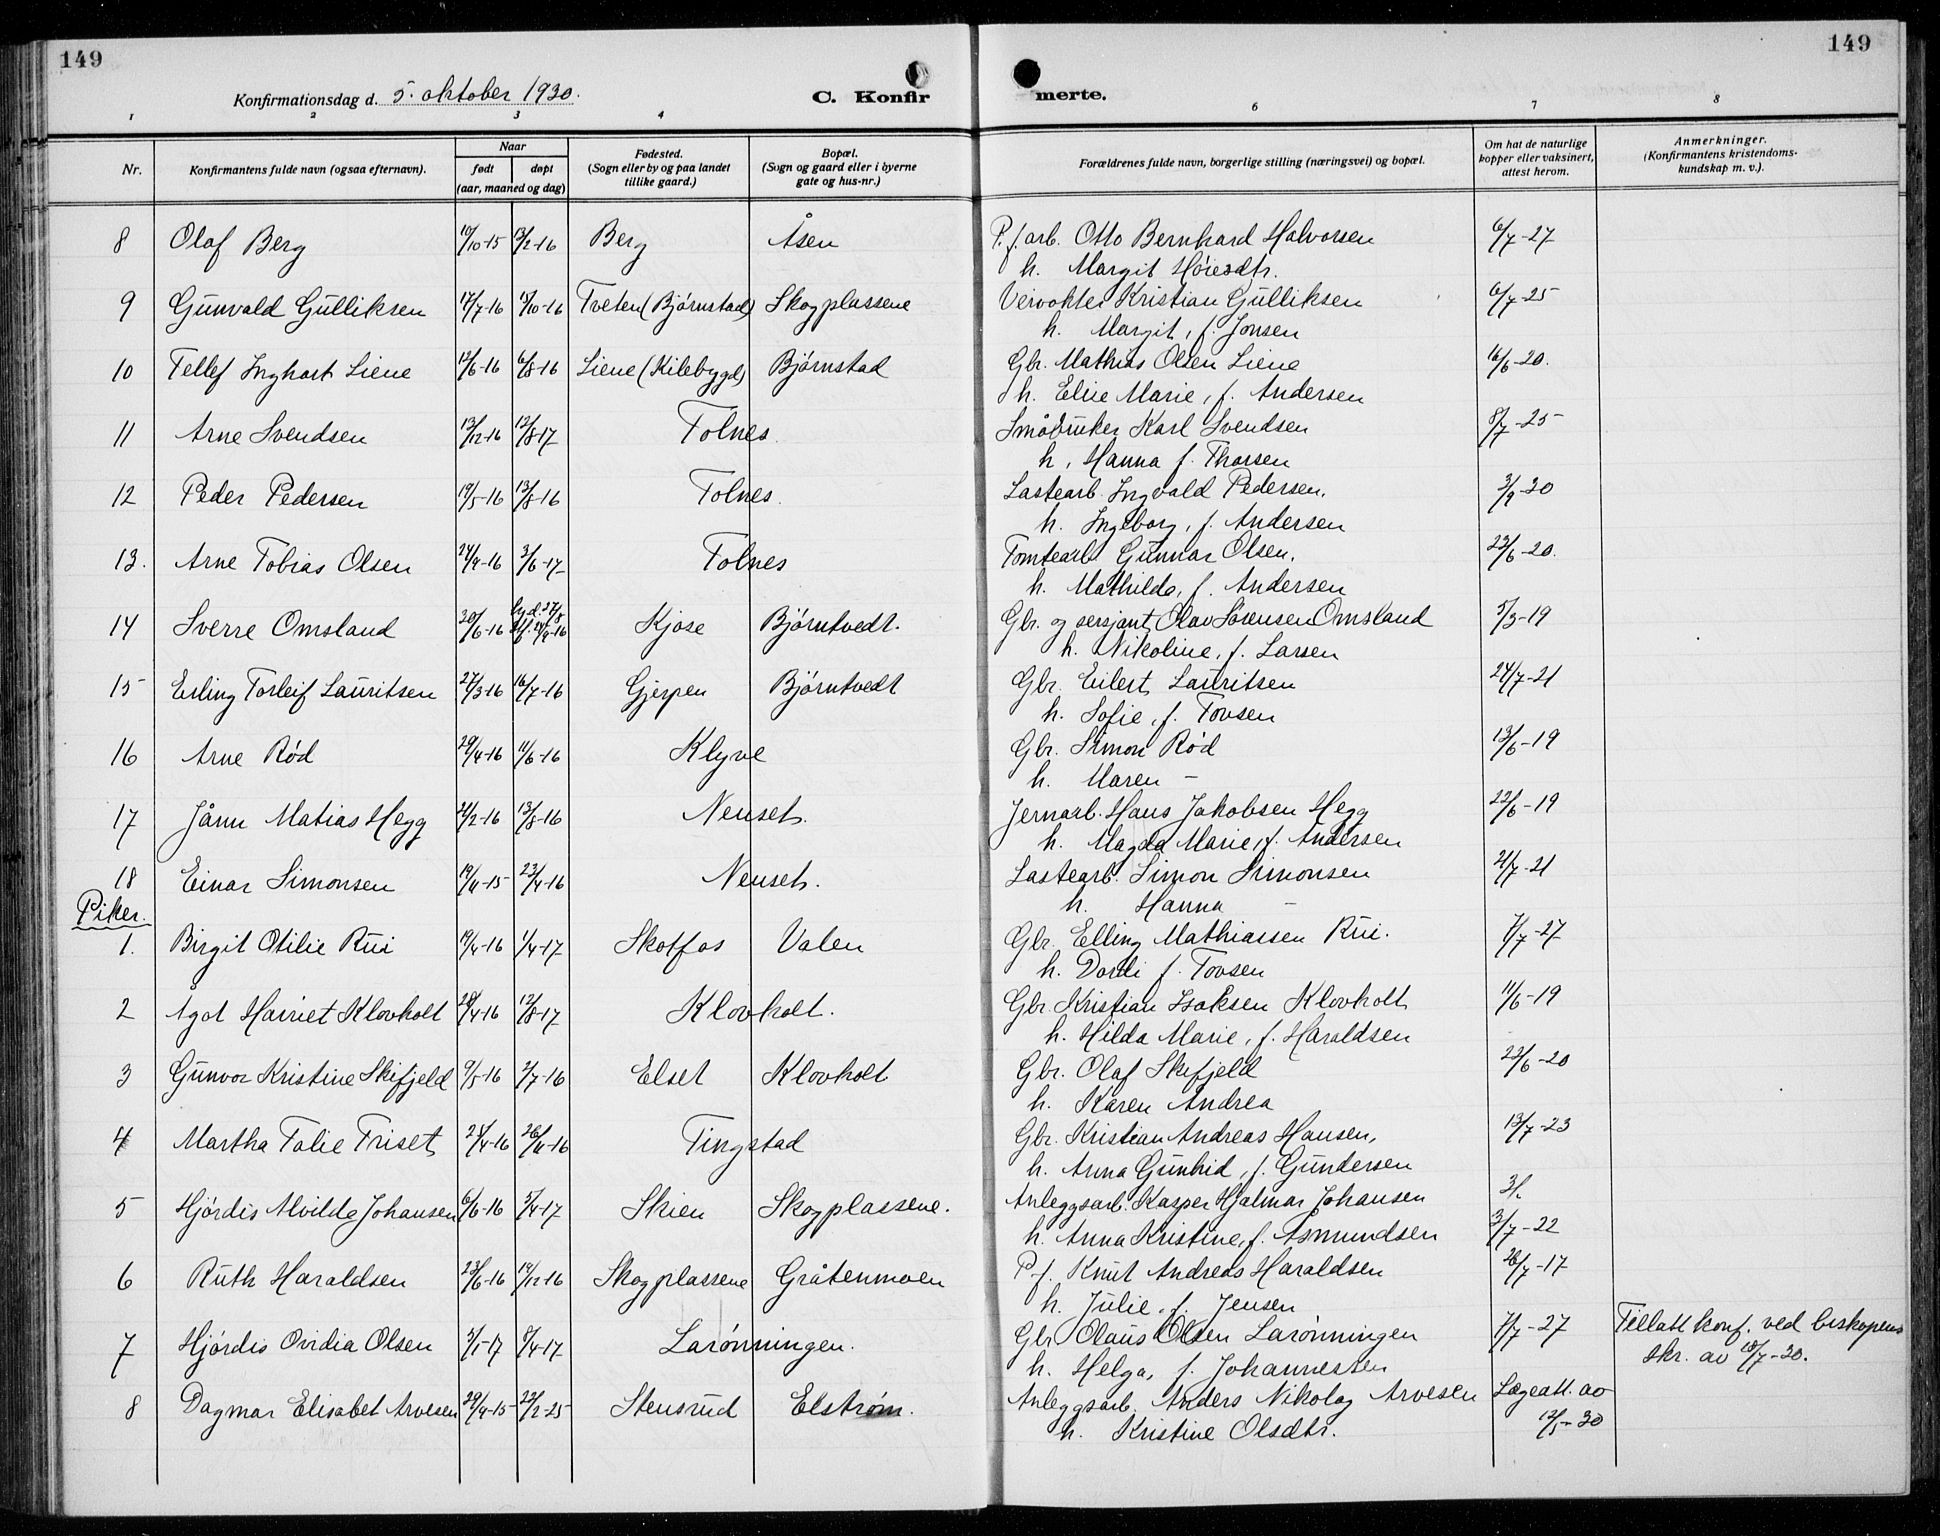 149
149
Konfirmationsdag d. 5. oktober 1930.
C. Konfir merte.
1 2 3 4 6 7 8
Nr.
Konfirmantens fulde navn (ogsaa efternavn).
Naar
født døpt
(aar, maaned og dag)
Fødested.
(Sogn eller by og paa landet
tillike gaard.)
Bopæl.
(Sogn og gaard eller i byerne
gate og hus-nr.)
Forældrenes fulde navn, borgerlige stilling (næringsvei) og bopæl.
Om hat de naturlige
kopper eller vaksinert,
attest herom.
Anmerkninger.
(Konfirmantens kristendoms-
kundskap m. v.).
8 Olaf Berg 10/10-15 13/2-16 Berg Åsen P. f. arb. Otto Bernhard Halvorsen 6/7-27
h. Margit Høiesdtr.
9 Gunvald Gulliksen 17/7-16 15/10-16 Tveten (Bjørnstad) Skogplassene Veivokter Kristian Gulliksen 6/7-25
h. Margit, f. Jonsen
10 Tellef Inghart Liene 12/6-16 6/8-16 Liene (Kilebygd) Bjørnstad Gbr. Mathias Olsen Liene 16/6-20.
h. Elise Marie, f. Andersen
11 Arne Svendsen 13/12-16 12/8-17 Tolnes Småbruker Karl Svendsen 8/7-25
h. Hanna f. Thorsen
12 Peder Pedersen 19/5-16 13/8-16 Tolnes. Lastearb. Ingvald Pedersen. 3/9-30
h. Ingeborg, f. Andersen
13. Arne Tobias Olsen 24/9-16 3/6-17 Tolnes Tomtearb Gunnar Olsen. 22/6-20.
h. Mathilde, f. Andersen
14 Sverre Omsland 30/6-16 hj.d. 27/8 24/9-16 Kjose Bjørntvedt. Gbr. og sersjant Olav Sørensen Omsland 5/3-19
h. Nikoline, f. Larsen
15 Erling Torleif Lauritsen 27/3-16 16/7-16 Gjerpen Bjørntvedt Gbr. Eilert Lauritsen 24/7-21
h. Sofie, f. Tovsen
16 Arne Rød 29/4-16 11/6-16 Klyve Gbr. Simon Rød 13/6-19
h. Maren -
17 Jånn Matias Hegg 21/2-16 13/8-16 Nenset. Jernarb. Hans Jakobsen Hegg 22/6-19
h. Magda Marie, f. Andersen
18 Einar Simonsen 19/11-15 23/4-16 Nenset. Lastearb. Simon Simonsen 21/7-21
h. Hanna -
Piker.
1. Birgit Otilie Rui 19/4-16 1/4-17 Skotfos Valen Gbr. Elling Mathiassen Rui. 7/7-27
h. Dordi f. Tovsen
2 Ågot Harriet Klovholt 28/4-16 12/8-17 Klovholt. Gbr Kristian Isaksen Klovholt 11/6-19
h. Hilda Marie, f. Haraldsen
3 Gunvor Kristine Skifjeld 9/5-16 2/7-16 Elset Klovholt Gbr. Olaf Skifjeld 22/6-20
h. Karen Andrea
4 Martha Talie Friset 24/4-16 26/11-16 Tingstad Gbr. Kristian Andreas Hansen, 13/7-23
h. Anna Gunhild, f. Gundersen
5 Hjørdis Alvilde Johansen 6/6-16 5/4-17 Skien Skogplassene. Anleggsarb. Kasper Hjalmar Johansen
h. Anna Kristine, f. Asmundsen 3/7-22
6 Ruth Haraldsen 23/6-16 19/12-16 Skogplassene Gråtenmoen P. f. Knut Andreas Haraldsen 26/7-17
h. Julie, f. Jensen
7 Hjørdis Ovidia Olsen 3/1-17 8/4-17 Larønningen. Gbr Olaus Olsen Larønningen 7/7-27 Tillatt konf. ved biskopens
h. Helga, f. Johannessen skr. av 15/7-30.
8 Dagmar Elisabet Arvesen 29/9-15 22/2-25 Stensrud Elstrøm. Anleggsarb. Anders Nikolay Arvesen Lægeatt. av
h. Kristine Olsdtr. 12/5-30